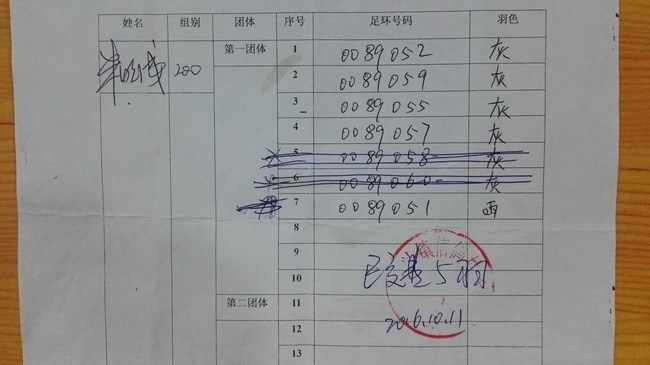 姓名 组别 团体 序号 足环号码 羽色
200 第一团体 1 0089052 灰
2 0089059 灰
3 0089055 灰
4 0089057 灰
5 0089058 灰
6 0089060 灰
7 0089051 雨
8
9
10 已交 5羽
第二团体 11
2016.10.11
12
13